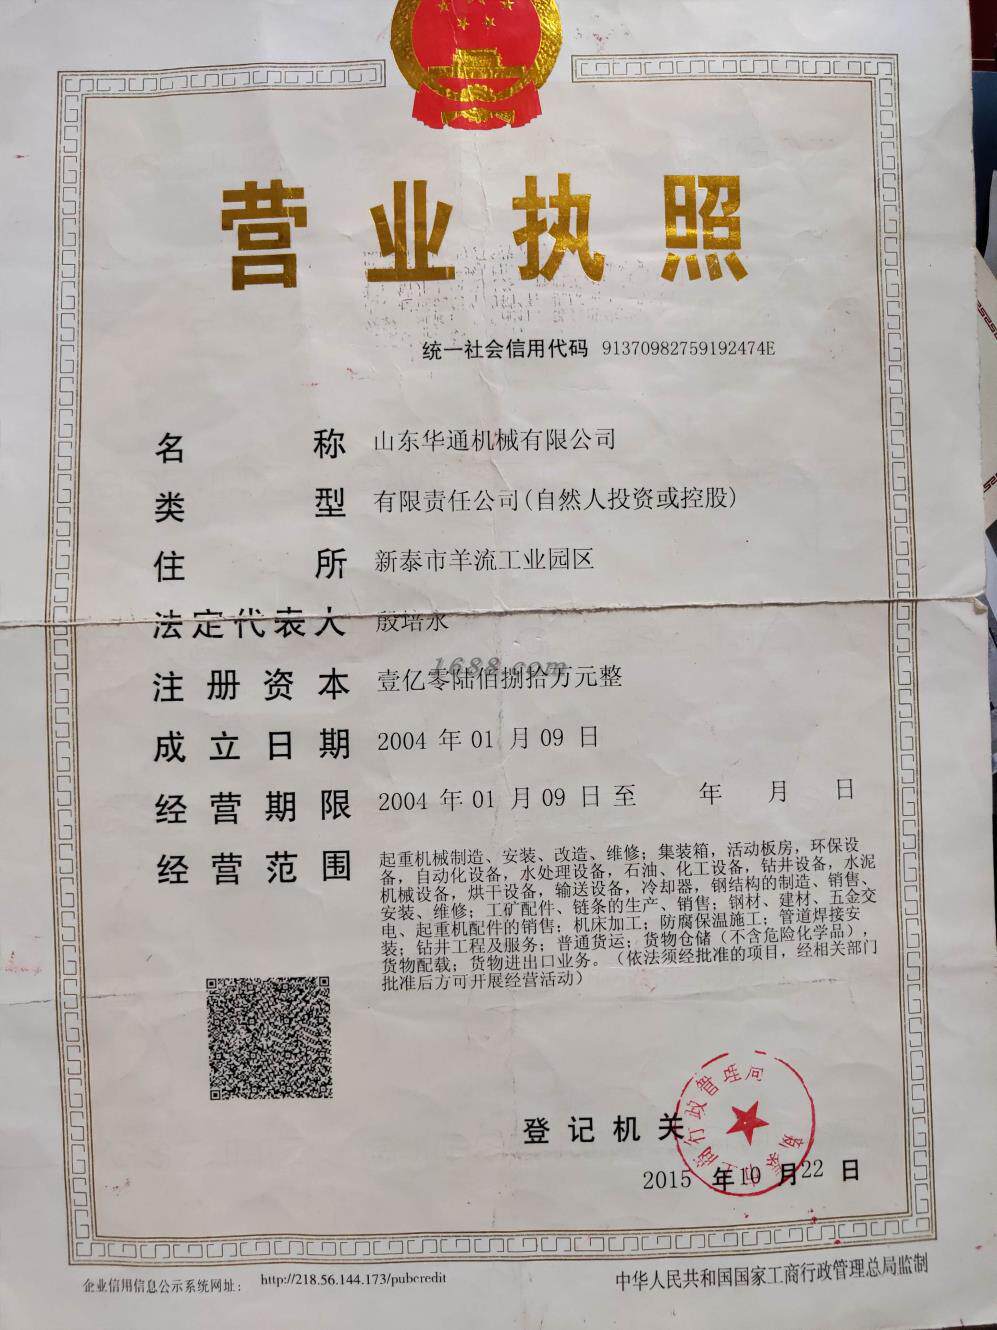 营业执照
统一社会信用代码 91370982759192474E
名称 山东华通机械有限公司
类型 有限责任公司(自然人投资或控股)
住所 新泰市羊流工业园区
法定代表人 殷培永
1688.com
注册资本 壹亿零陆佰捌拾万元整
成立日期 2004 年 01 月 09 日
经营期限 2004 年 01 月 09 日 至 年 月 日
经营范围 起重机械制造、安装、改造、维修；集装箱，活动板房，环保设
备，自动化设备，水处理设备，石油、化工设备，钻井设备，水泥
机械设备，烘干设备，输送设备，冷却器，钢结构的制造、销售、
安装、维修；工矿配件、链条的生产、销售；钢材、建材、五金交
电、起重机配件的销售；机床加工；防腐保温施工；管道焊接安
装；钻井工程及服务；普通货运；货物仓储（不含危险化学品），
货物配载；货物进出口业务。（依法须经批准的项目，经相关部门
批准后方可开展经营活动）
登记机关
新泰市工商行政管理局
2015 年 10 月 22 日
企业信用信息公示系统网址： http://218.56.144.173/pubcredit
中华人民共和国国家工商行政管理总局监制